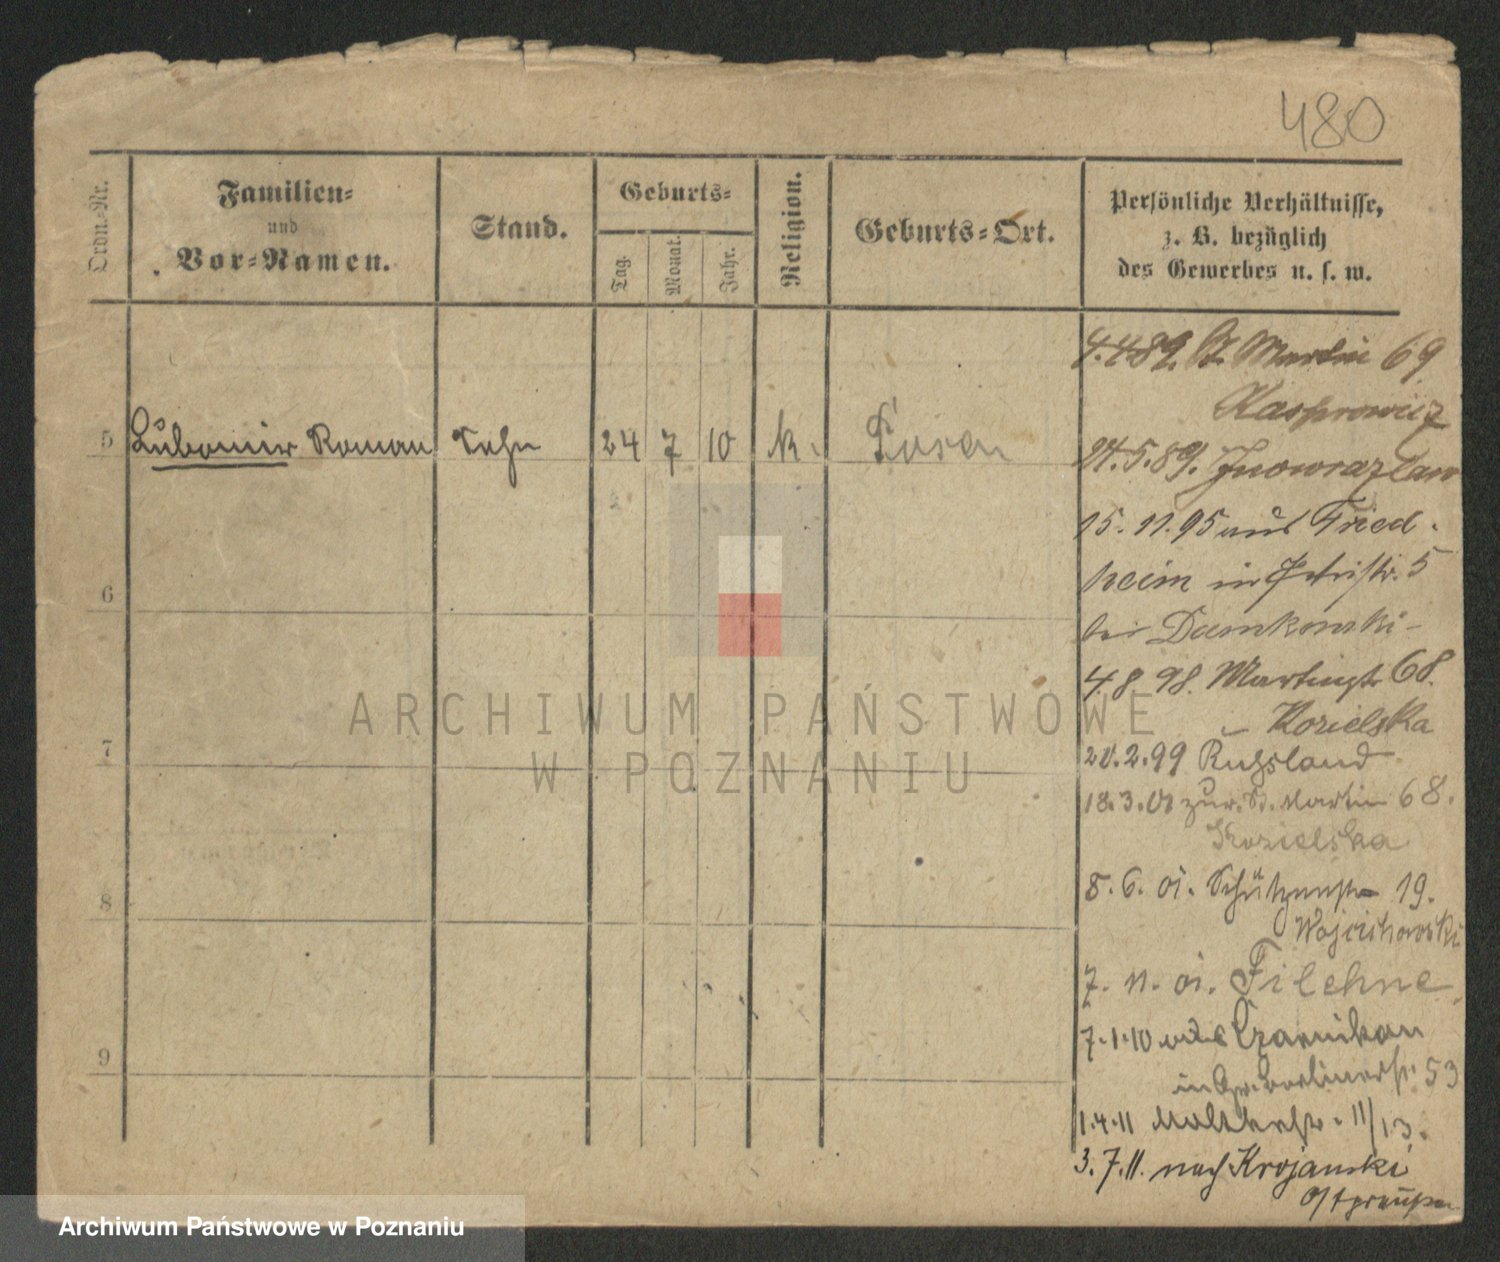 480
Ordn.-Nr.
Familien-
und
Vor-Namen.
Stand.
Geburts-
Tag.
Monat.
Jahr.
Religion.
Geburts-Ort.
Persönliche Verhältnisse,
z. B. bezüglich
des Gewerbes u. s. w.
5 Lubomir Roman Sohn 24 7 10 k. Posen
6
7
8
9
4.4.89. St. Martin 69
Kasprowicz
24.5.89. Inowrazlaw
15.11.95 aus Fried-
heim in Petristr. 5
bei Damkowski-
4.8.98. Martinstr 68.
Kozielska
20.2.99 Rußland
18.3.01 zur. St. Martin 68.
Kozielska
8.6.01. Schützenstr 19.
Wojciehowski
7.11.01. Filehne
7.1.10 aus Czarnikau
in Gr. Berlinerstr. 53
1.4.11 Moltkestr. 11/13.
3.7.11. nach Krojanski
Ostpreußen
ARCHIWUM PAŃSTWOWE
W POZNANIU
Archiwum Państwowe w Poznaniu